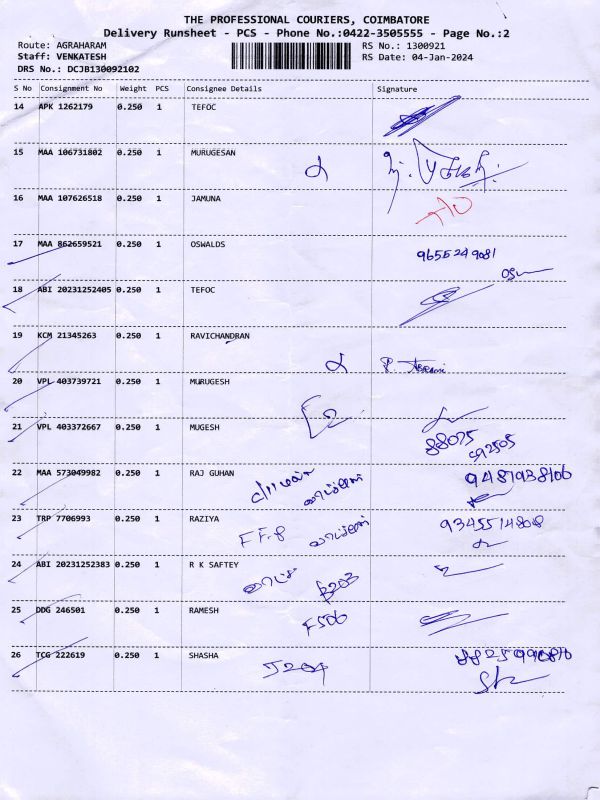 THE PROFESSIONAL COURIERS, COIMBATORE
Delivery Runsheet - PCS - Phone No.:0422-3505555 - Page No.:2
Route: AGRAHARAM RS No.: 1300921
Staff: VENKATESH RS Date: 04-Jan-2024
DRS No.: DCJB130092102
S No Consignment No Weight PCS Consignee Details Signature
14 APK 1262179 0.250 1 TEFOC
15 MAA 106731802 0.250 1 MURUGESAN
16 MAA 107626518 0.250 1 JAMUNA
17 MAA 862659521 0.250 1 OSWALDS 9655249081
18 ABI 20231252405 0.250 1 TEFOC
19 KCM 21345263 0.250 1 RAVICHANDRAN
20 VPL 403739721 0.250 1 MURUGESH
21 VPL 403372667 0.250 1 MUGESH
22 MAA 573049982 0.250 1 RAJ GUHAN
23 TRP 7706993 0.250 1 RAZIYA
24 ABI 20231252383 0.250 1 R K SAFTEY B203
25 DDG 246501 0.250 1 RAMESH F506
26 TCG 222619 0.250 1 SHASHA J204